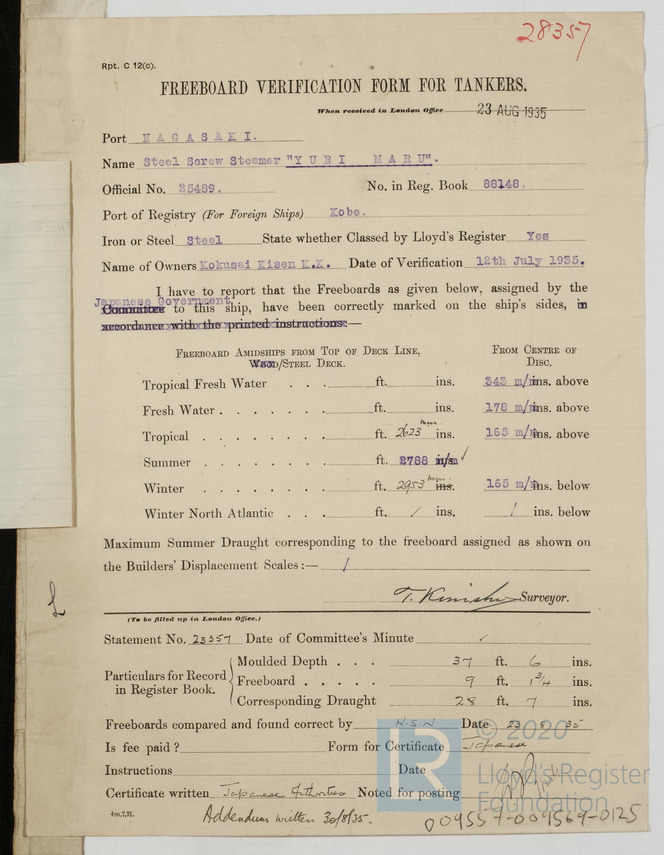 28357
Rpt. C 12(c).
FREEBOARD VERIFICATION FORM FOR TANKERS.
When received in London Office 23 AUG 1935
Port NAGASAKI.
Name Steel Screw Steamer "YURI MARU".
Official No. 25489. No. in Reg. Book 88148.
Port of Registry (For Foreign Ships) Kobe.
Iron or Steel Steel State whether Classed by Lloyd's Register Yes
Name of Owners Kokusai Kisen K.K. Date of Verification 12th July 1935.
I have to report that the Freeboards as given below, assigned by the
Japanese Government
Committee to this ship, have been correctly marked on the ship's sides, in
accordance with the printed instructions:—
FREEBOARD AMIDSHIPS FROM TOP OF DECK LINE, FROM CENTRE OF
WOOD/STEEL DECK. DISC.
Tropical Fresh Water . . . ft. ins. 343 m/m ins. above
Fresh Water . . . . . . . ft. ins. 178 m/m ins. above
Tropical . . . . . . . . ft. 2623 mm. ins. 165 m/m ins. above
Summer . . . . . . . . ft. 2788 m/m ✓
Winter . . . . . . . . ft. 2953 mm. ins. 165 m/m ins. below
Winter North Atlantic . . . ft. / ins. / ins. below
Maximum Summer Draught corresponding to the freeboard assigned as shown on
the Builders' Displacement Scales :— /
T. Kinishi Surveyor.
(To be filled up in London Office.)
Statement No. 23357 Date of Committee's Minute ✓
Particulars for Record in Register Book.
Moulded Depth . . . 37 ft. 6 ins.
Freeboard . . . . . 9 ft. 1 3/4 ins.
Corresponding Draught 28 ft. 7 ins.
Freeboards compared and found correct by H.S.N Date 23.8.35
Is fee paid ? Form for Certificate Japanese
Instructions Date
Certificate written Japanese Authorities Noted for posting
4m,7,31.
Addendum written 30/8/35.
009557-009569-0125
LR
© 2020
Lloyd's Register
Foundation